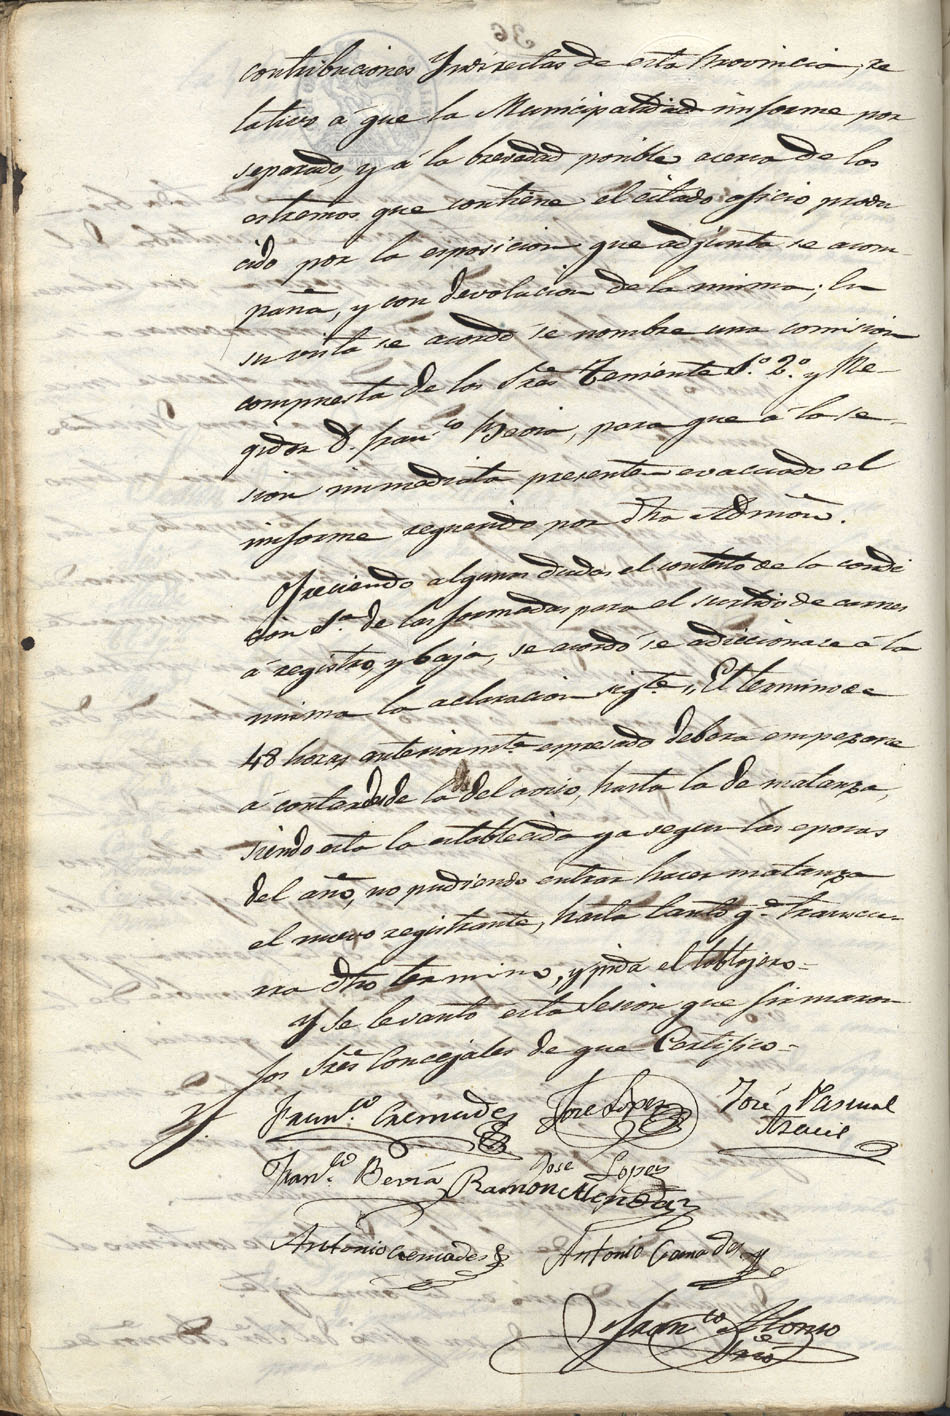 contribuciones Yndirectas de esta Provincia, re
lativo á que la Municipalidad informe por
separado, y á la brevedad posible acerca de los
estremos que contiene el citado oficio produ
cido por la esposicion que adjunta se acom-
paña, y con devolucion de la misma; En
su vista se acordó se nombre una comision
compuesta de los Sres Teniente 1.º 2.º y Re-
gidor D. Fran.co Beviá, para que á la se-
sion inmediata presenten evacuado el
informe requerido por dha Admon.
Ofreciendo algunas dudas el contesto de la condi
cion 1.ª de las formadas para el surtido de carnes
á registro, y baja, se acordó se adiccionase á la
misma la aclaracion sigte. "El termino de
48 horas anteriormte espresado deberá empezarse
á contar desde la del aviso, hasta la de matanza,
siendo esta la establecida ya segun las epocas
del año, no pudiendo entrar hacer matanza
el nuevo registrante, hasta tanto q.e transcu-
rra dho termino, y pida el tablajero=
Y se levantó esta sesion que firmaron
los Sres Concejales de que Certifico=
Fran.co Cremades José Lopez José Pascual
Fran.co Beviá José Lopez
Ramon Mendoza
Antonio Cremades Antonio
Fran.co Alonso
Srio